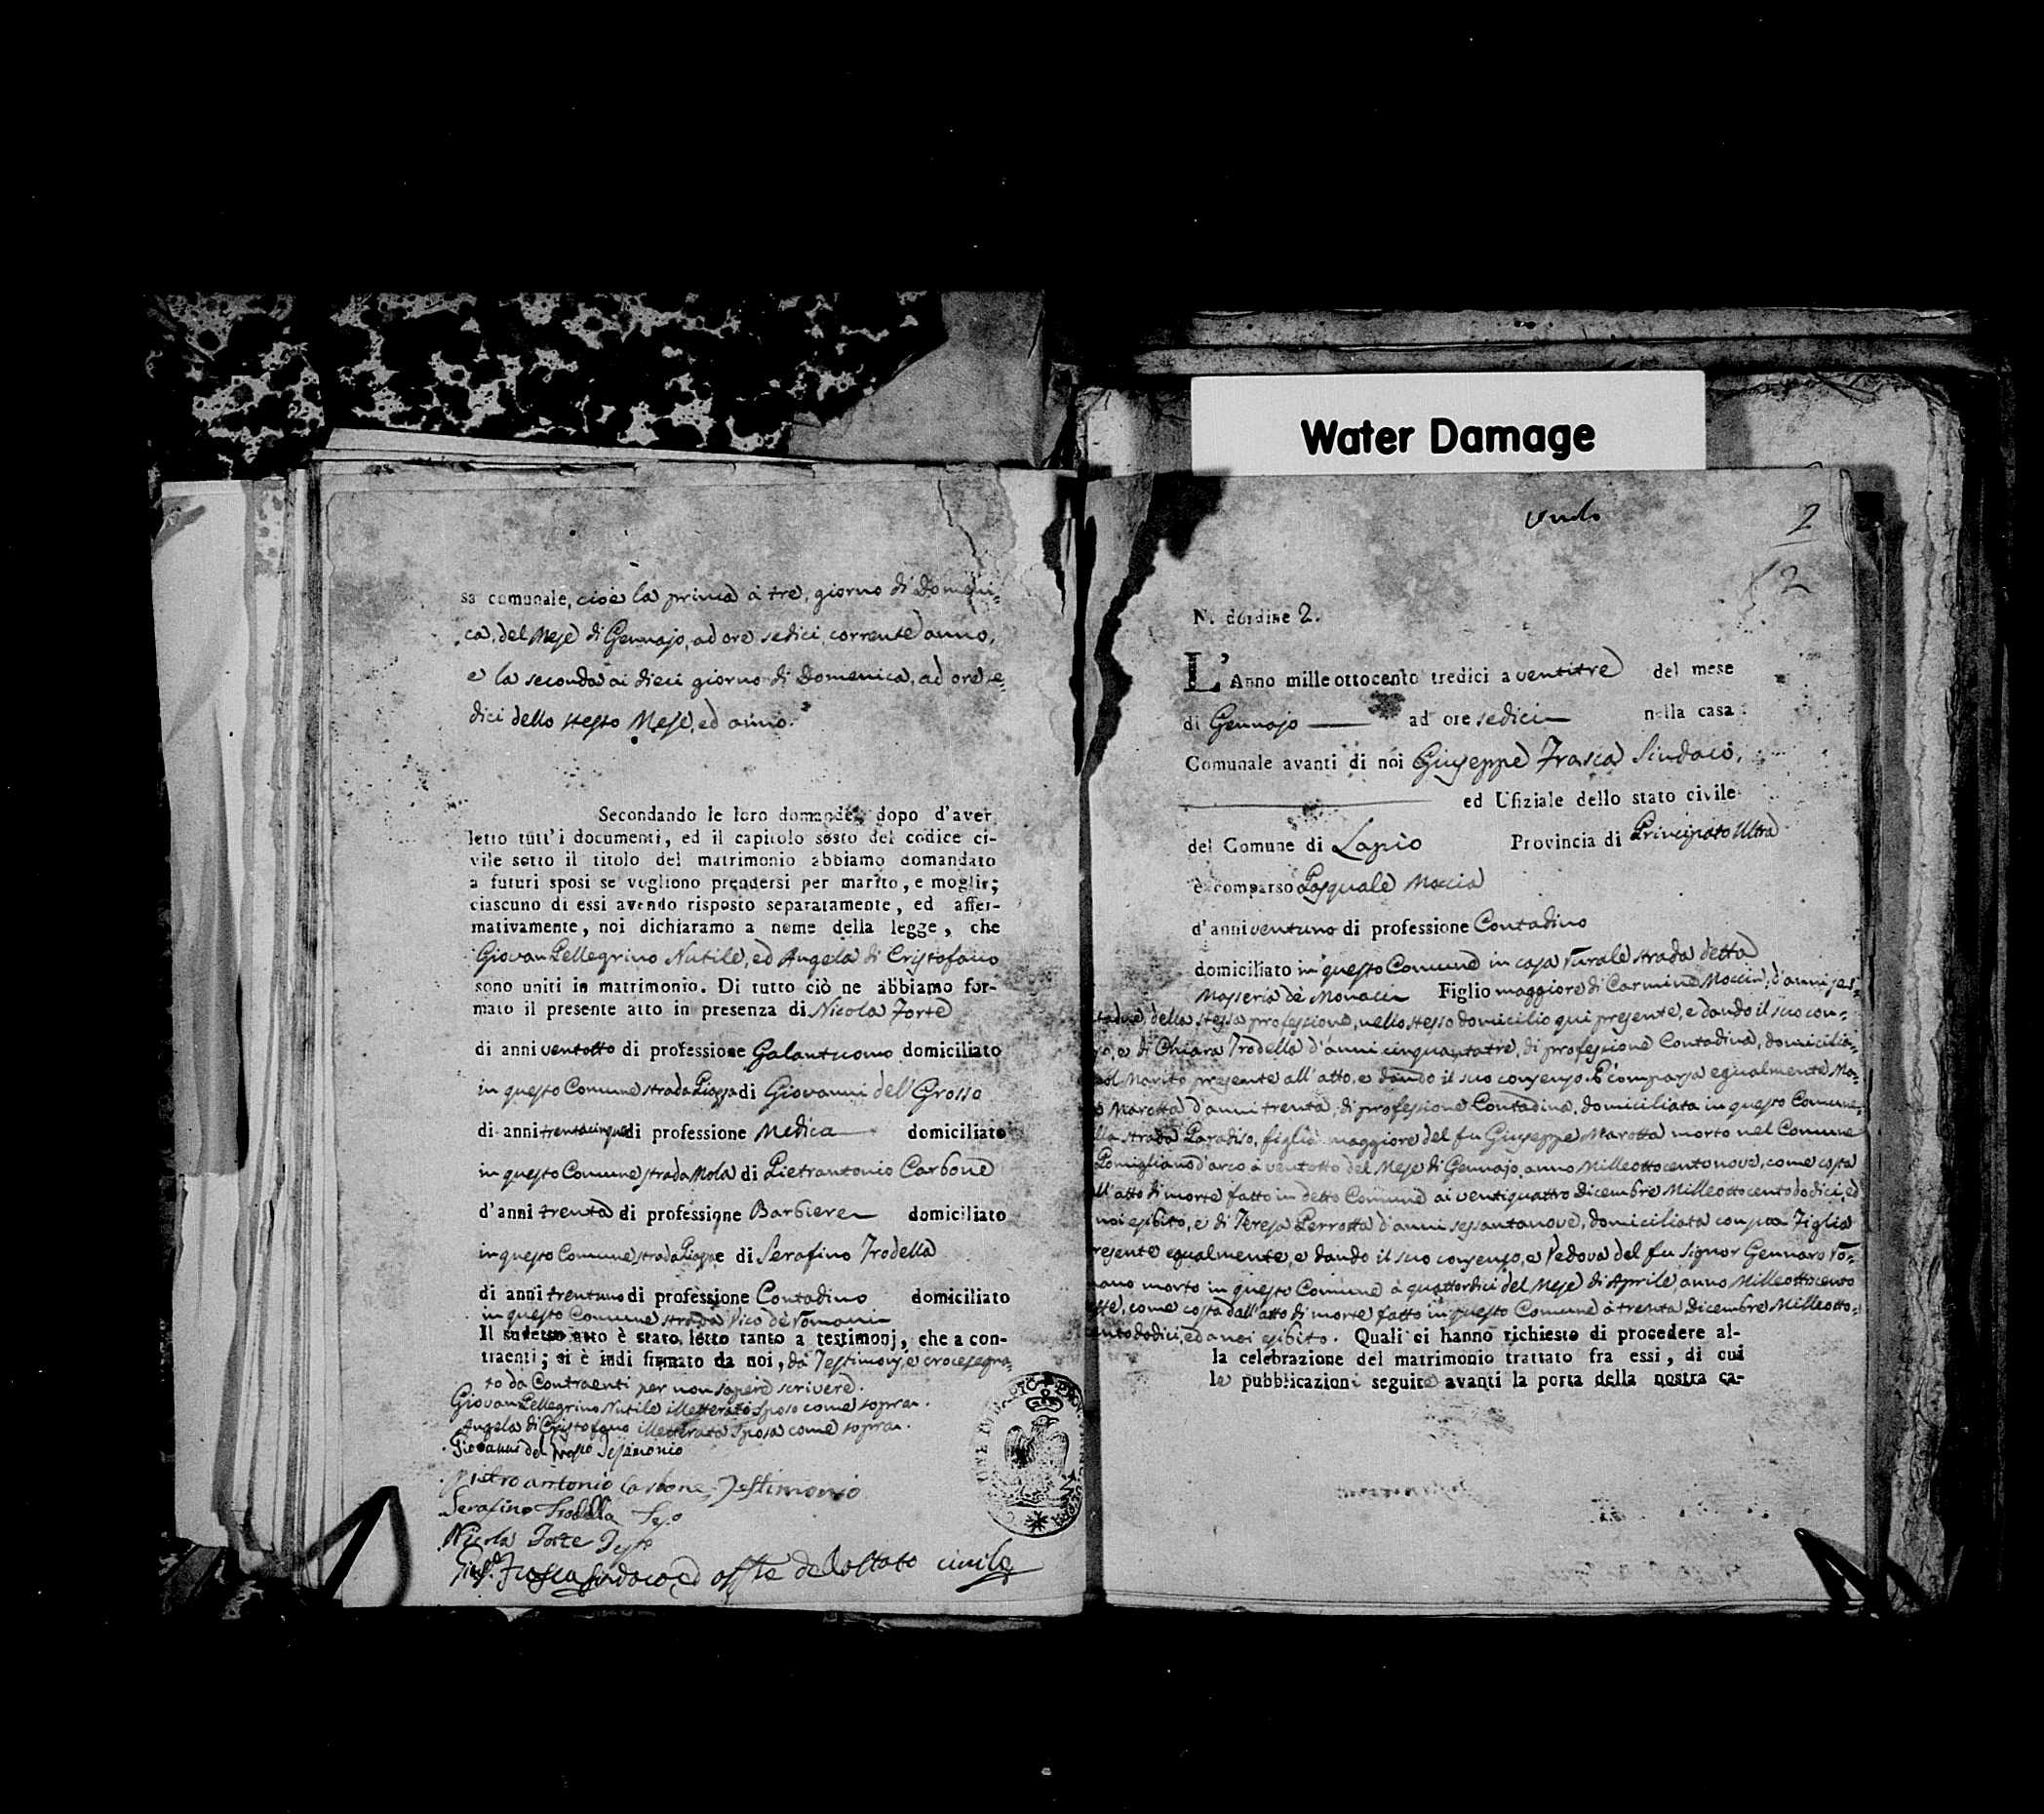 sa comunale, cioè la prima à tre, giorno di Domeni-
ca, del Mese di Gennajo, ad ore sedici, corrente anno,
e la seconda ai dieci giorno di Domenica, ad ore se-
dici dello stesso Mese, ed anno.
Secondando le loro domande, dopo d'aver
letto tutt'i documenti, ed il capitolo sesto del codice ci-
vile sotto il titolo del matrimonio abbiamo domandato
a futuri sposi se vogliono prendersi per marito, e moglie;
ciascuno di essi avendo risposto separatamente, ed affer-
mativamente, noi dichiaramo a nome della legge, che
Giovan Pellegrino Nutile, ed Angela di Cristofano
sono uniti in matrimonio. Di tutto ciò ne abbiamo for-
mato il presente atto in presenza di Nicola Forte
di anni ventotto di professione Galantuomo domiciliato
in questo Comune strada Piazza di Giovanni del Grosso
di anni trentacinque di professione Medica domiciliato
in questo Comune strada Mola di Pietrantonio Carbone
d'anni trenta di professione Barbiere domiciliato
in questo Comune strada Piazza e di Serafino Trodella
di anni trentuno di professione Contadino domiciliato
in questo Comune strada Vico dè Romani
Il sudetto atto è stato letto tanto a testimonj, che a con-
traenti; si è indi firmato da noi, da Testimonj, e crocesegna-
to da Contraenti per non sapere scrivere.
Giovan Pellegrino Nutile illetterato Sposo come sopra.
Angela di Cristofano illetterata Sposa come sopra.
Giovanni del Grosso Testimonio
Pietro antonio Carbone Testimonio
Serafino Trodella Tes.o
Nicola Forte Testo
Sindaco ed dello stato civile
Water Damage
2
2
N. dordine 2.
L'Anno mille ottocento tredici a ventitre del mese
di Gennajo ad ore sedici nella casa
Comunale avanti di noi Giuseppe Frasca Sindaco,
ed Ufiziale dello stato civile
del Comune di Lapio Provincia di Principato Ultra
è comparso Pasquale Moccia
d'anni ventuno di professione Contadino
domiciliato in questo Comune in casa rurale strada detta
Masseria dè Monaci Figlio maggiore di Carmine Moccia, d'anni ses-
della stessa professione, nello stesso domicilio qui presente, e dando il suo con-
e di Chiara Trodella d'anni cinquantatre, di professione Contadina, domicilia-
Marito presente all'atto, e dando il suo consenso. E' comparsa egualmente Ma-
Marotta d'anni trenta, di professione Contadina, domiciliata in questo Comune
strada Paradiso, figlia maggiore del fu Giuseppe Marotta morto nel Comune
Pomigliano d'arco à ventotto del Mese di Gennajo anno Milleottocentonove, come costa
all'atto di morte fatto in detto Comune ai ventiquattro Dicembre Milleottocentododici, ed
noi esibito, e di Teresa Perrotta d'anni sessantanove, domiciliata con sua Figlia
presente egualmente, e dando il suo consenso, e Vedova del fu Signor Gennaro Ro-
mano morto in questo Comune à quattordici del Mese di Aprile anno Milleottocento
come costa dall'atto di morte fatto in questo Comune à trenta Dicembre Milleotto-
centododici, ed a noi esibito. Quali ci hanno richiesto di procedere al-
la celebrazione del matrimonio trattato fra essi, di cui
le pubblicazioni seguite avanti la porta della nostra ca-